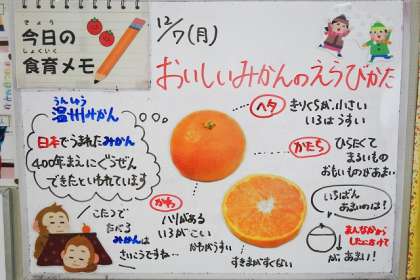 きょう
今日の
しょくいく
食育メモ
12/7(月)
おいしいみかんのえらびかた
うんしゅう
温州みかん
日本でうまれたみかん
400年まえにぐうぜん
できたといわれています
ヘタ
きりくちが小さい
いろはうすい
かたち
ひらたくて
まるいもの
おもいものがあまい
かわ
ハリがある
いろがこい
かわがうすい
すきまがすくない
こたつで
たべる
みかんは
さいこうですね…
いちばん
あまいのは?
まんなかから
したにかけて
が、あまい!